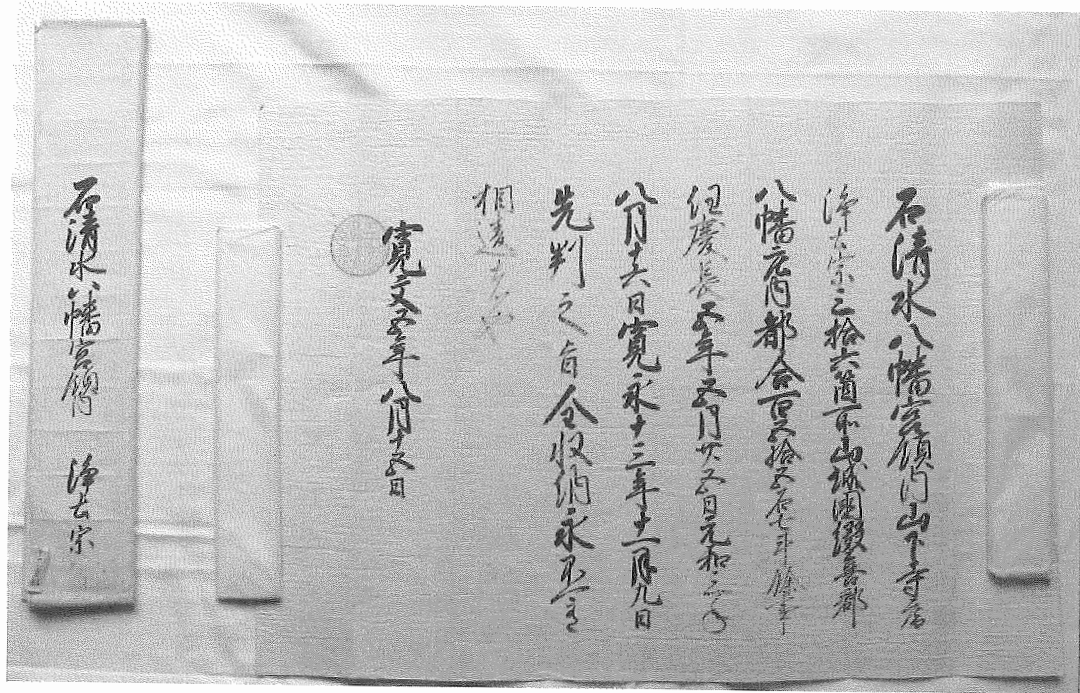 石清水八幡宮領内山下寺庵
浄土宗三拾六箇所山城国綴喜郡
八幡庄内都合百五拾五石七斗余事
任慶長五年五月廿五日元和三年
八月十六日寛永十三年十一月九日
先判之旨全収納永不可有
相違者也
寛文五年八月十五日
石清水八幡宮領内 浄土宗